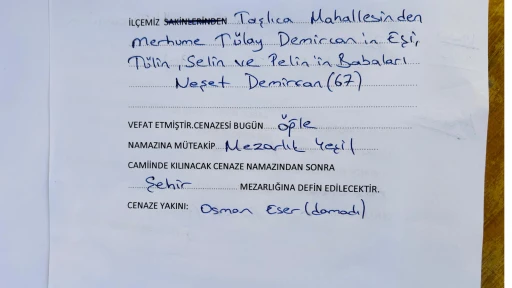 İLÇEMİZ SAKİNLERİNDEN Taşlıca Mahallesinden
Merhume Tülay Demircan'ın Eşi,
Tülin, Selin ve Pelin'in Babaları
Neşet Demircan (67)
VEFAT ETMİŞTİR.CENAZESİ BUGÜN öğle
NAMAZINA MÜTEAKİP Mezarlık Yeşil
CAMİİNDE KILINACAK CENAZE NAMAZINDAN SONRA
Şehir MEZARLIĞINA DEFİN EDİLECEKTİR.
CENAZE YAKINI: Osman Eser (damadı)